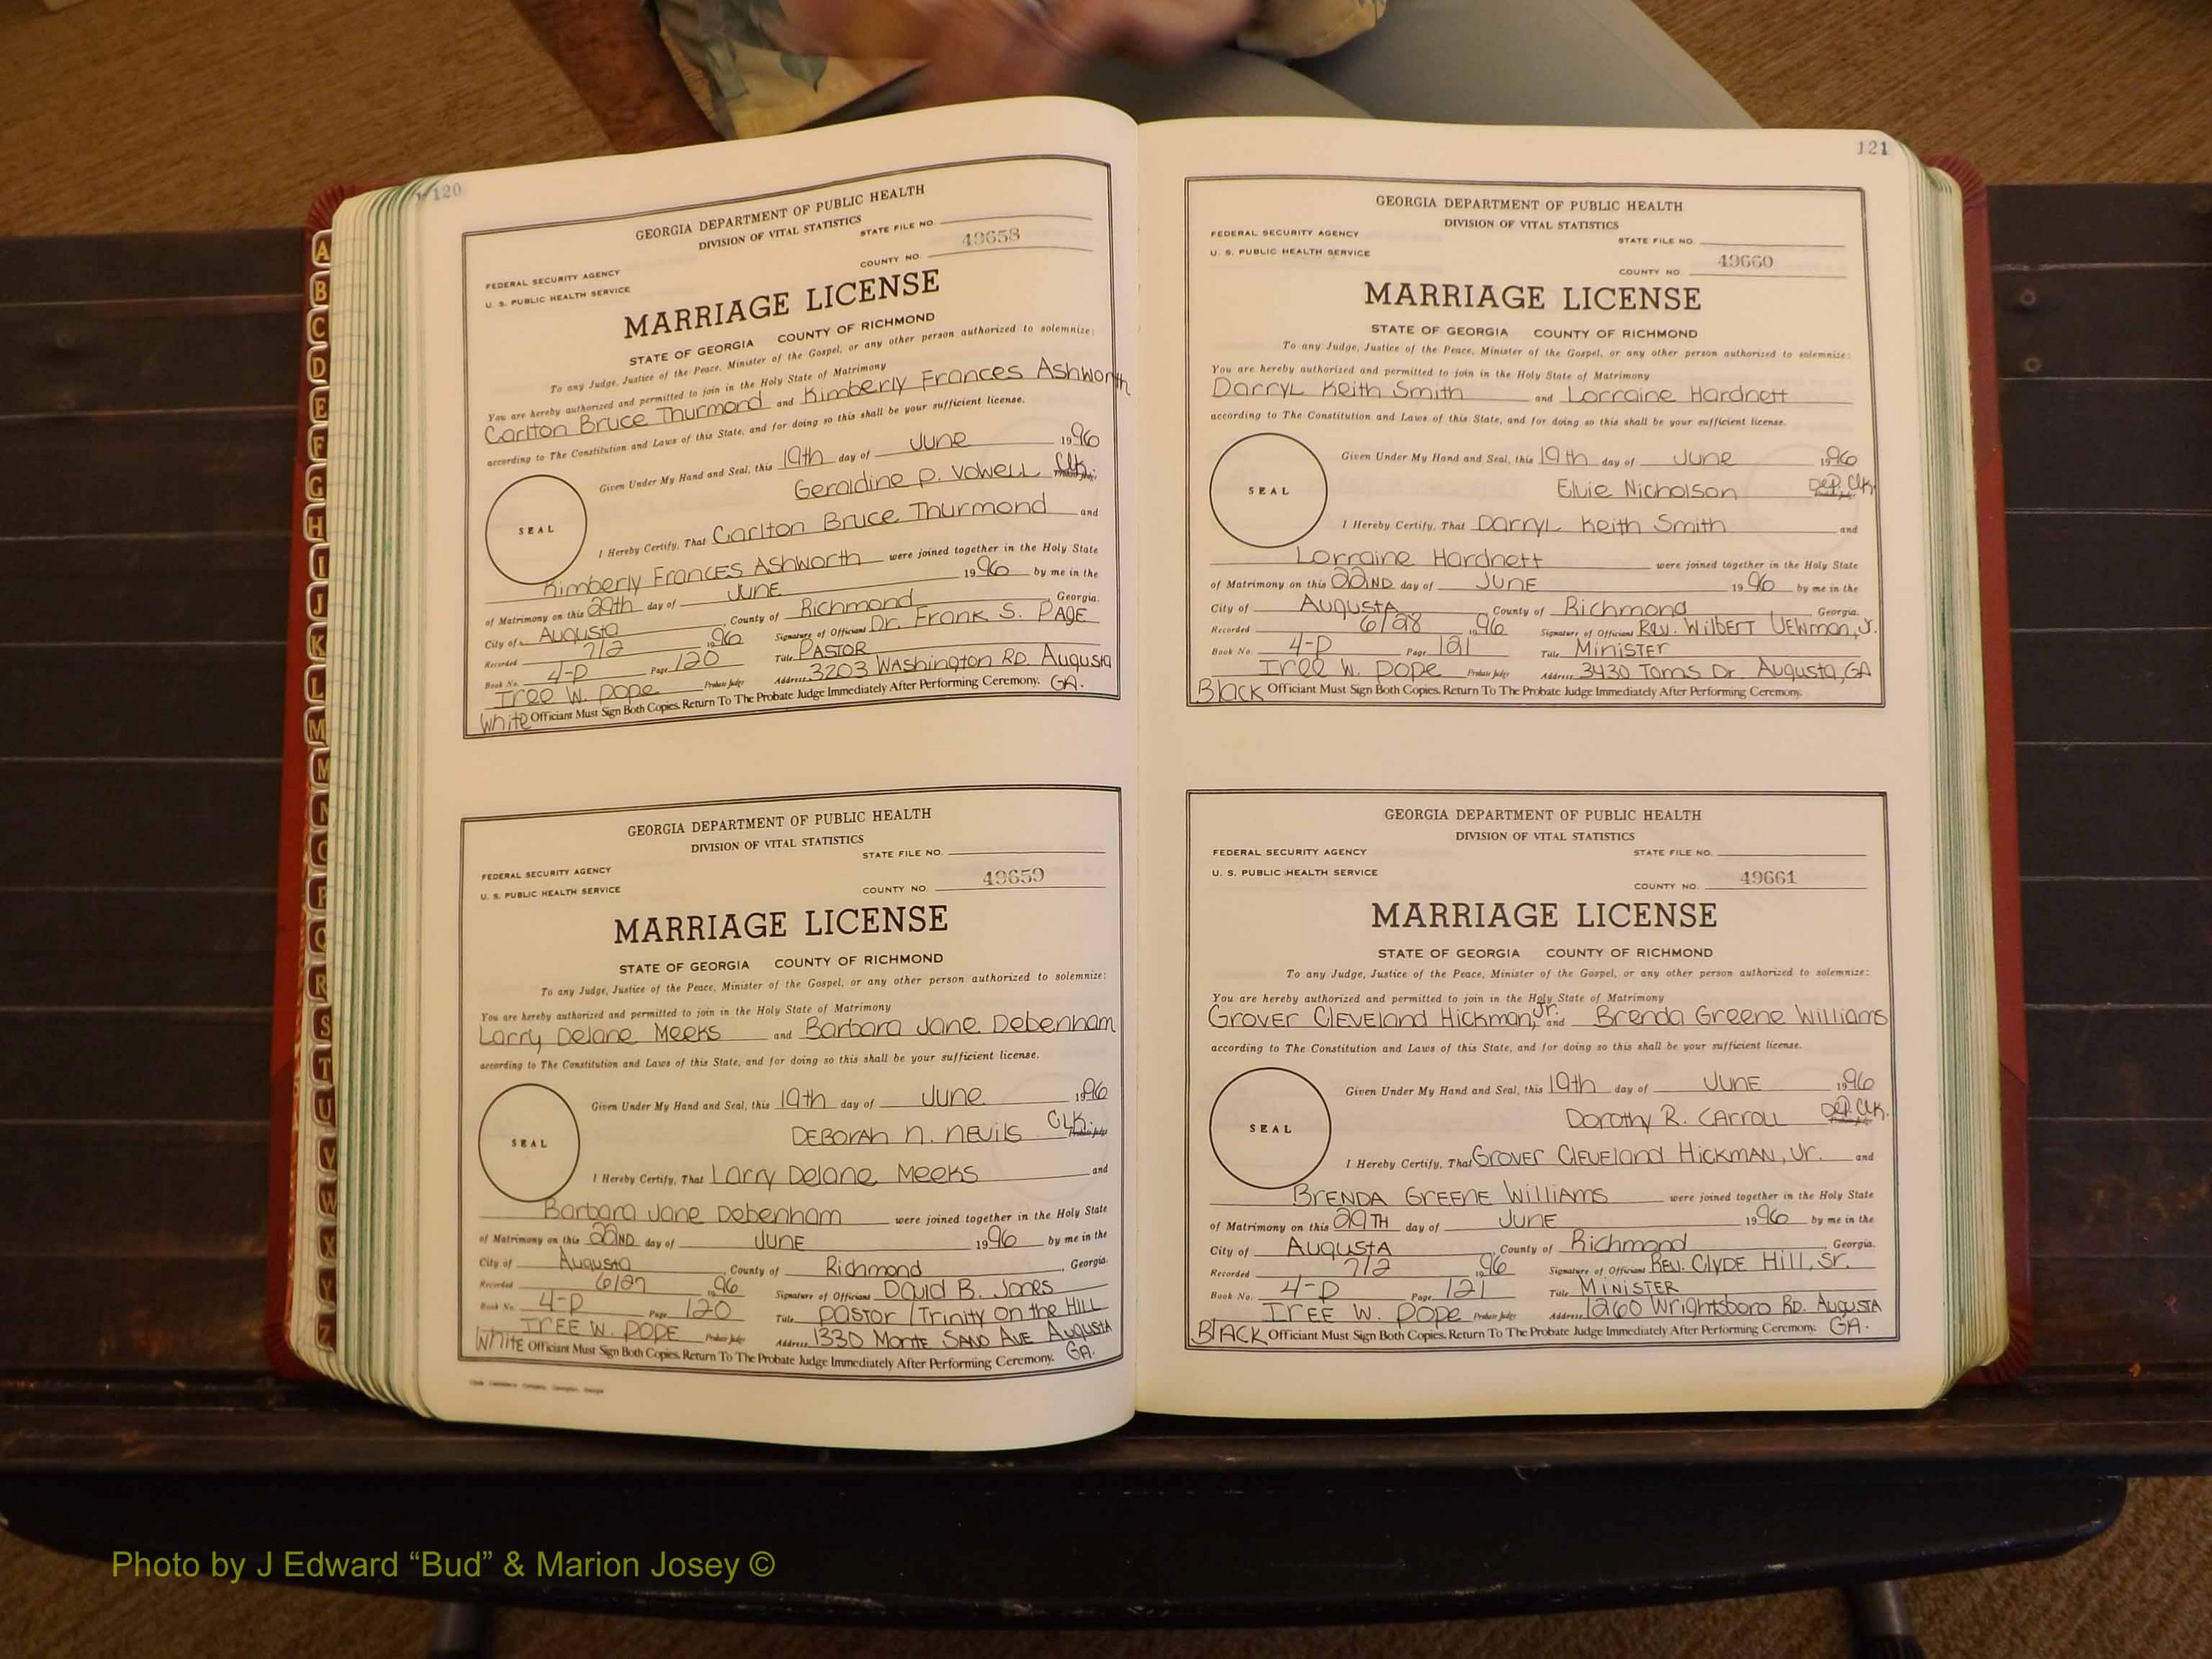 120
GEORGIA DEPARTMENT OF PUBLIC HEALTH
DIVISION OF VITAL STATISTICS
STATE FILE NO.
FEDERAL SECURITY AGENCY
U. S. PUBLIC HEALTH SERVICE
COUNTY NO. 49658
MARRIAGE LICENSE
STATE OF GEORGIA COUNTY OF RICHMOND
To any Judge, Justice of the Peace, Minister of the Gospel, or any other person authorized to solemnize:
You are hereby authorized and permitted to join in the Holy State of Matrimony
Carlton Bruce Thurmond and Kimberly Frances Ashworth
according to The Constitution and Laws of this State, and for doing so this shall be your sufficient license.
Given Under My Hand and Seal, this 19th day of June 1996
Geraldine P. Vowell Clk.
SEAL
I Hereby Certify, That Carlton Bruce Thurmond and
Kimberly Frances Ashworth were joined together in the Holy State
of Matrimony on this 29th day of June 1996 by me in the
City of Augusta, County of Richmond, Georgia.
Recorded 7/2 1996 Signature of Officiant Dr. Frank S. Page
Book No. 4-P Page 120 Title Pastor
Tree W. Pope Probate Judge Address 3203 Washington Rd. Augusta
White Officiant Must Sign Both Copies. Return To The Probate Judge Immediately After Performing Ceremony. GA.
GEORGIA DEPARTMENT OF PUBLIC HEALTH
DIVISION OF VITAL STATISTICS
STATE FILE NO.
FEDERAL SECURITY AGENCY
U. S. PUBLIC HEALTH SERVICE
COUNTY NO. 49659
MARRIAGE LICENSE
STATE OF GEORGIA COUNTY OF RICHMOND
To any Judge, Justice of the Peace, Minister of the Gospel, or any other person authorized to solemnize:
You are hereby authorized and permitted to join in the Holy State of Matrimony
Larry Delane Meeks and Barbara Jane Debenham
according to The Constitution and Laws of this State, and for doing so this shall be your sufficient license.
Given Under My Hand and Seal, this 19th day of June 1996
Deborah N. Nevils Clk.
SEAL
I Hereby Certify, That Larry Delane Meeks and
Barbara Jane Debenham were joined together in the Holy State
of Matrimony on this 22nd day of June 1996 by me in the
City of Augusta, County of Richmond, Georgia.
Recorded 6/27 1996 Signature of Officiant David B. Jones
Book No. 4-P Page 120 Title Pastor / Trinity on the Hill
Tree W. Pope Probate Judge Address 1330 Monte Sano Ave Augusta
White Officiant Must Sign Both Copies. Return To The Probate Judge Immediately After Performing Ceremony. GA.
121
GEORGIA DEPARTMENT OF PUBLIC HEALTH
DIVISION OF VITAL STATISTICS
FEDERAL SECURITY AGENCY
STATE FILE NO.
U. S. PUBLIC HEALTH SERVICE
COUNTY NO. 49660
MARRIAGE LICENSE
STATE OF GEORGIA COUNTY OF RICHMOND
To any Judge, Justice of the Peace, Minister of the Gospel, or any other person authorized to solemnize:
You are hereby authorized and permitted to join in the Holy State of Matrimony
Darryl Keith Smith and Lorraine Hardnett
according to The Constitution and Laws of this State, and for doing so this shall be your sufficient license.
Given Under My Hand and Seal, this 19th day of June 1996
Elvie Nicholson Dep. Clk.
SEAL
I Hereby Certify, That Darryl Keith Smith and
Lorraine Hardnett were joined together in the Holy State
of Matrimony on this 22nd day of June 1996 by me in the
City of Augusta, County of Richmond, Georgia.
Recorded 6/28 1996 Signature of Officiant Rev. Wilbert Uewman, Jr.
Book No. 4-P Page 121 Title Minister
Tree W. Pope Probate Judge Address 3430 Toms Dr. Augusta, GA
Black Officiant Must Sign Both Copies. Return To The Probate Judge Immediately After Performing Ceremony.
GEORGIA DEPARTMENT OF PUBLIC HEALTH
DIVISION OF VITAL STATISTICS
FEDERAL SECURITY AGENCY
STATE FILE NO.
U. S. PUBLIC HEALTH SERVICE
COUNTY NO. 49661
MARRIAGE LICENSE
STATE OF GEORGIA COUNTY OF RICHMOND
To any Judge, Justice of the Peace, Minister of the Gospel, or any other person authorized to solemnize:
You are hereby authorized and permitted to join in the Holy State of Matrimony
Grover Cleveland Hickman, Jr. and Brenda Greene Williams
according to The Constitution and Laws of this State, and for doing so this shall be your sufficient license.
Given Under My Hand and Seal, this 19th day of June 1996
Dorothy R. Carroll Dep. Clk.
SEAL
I Hereby Certify, That Grover Cleveland Hickman, Jr. and
Brenda Greene Williams were joined together in the Holy State
of Matrimony on this 29th day of June 1996 by me in the
City of Augusta, County of Richmond, Georgia.
Recorded 7/2 1996 Signature of Officiant Rev. Clyde Hill, Sr.
Book No. 4-P Page 121 Title Minister
Iree W. Pope Probate Judge Address 1260 Wrightsboro Rd. Augusta
Black Officiant Must Sign Both Copies. Return To The Probate Judge Immediately After Performing Ceremony. GA.
A
B
C
D
E
F
G
H
I
J
K
L
M
M
N
O
P
Q
R
S
T
U
V
W
X
Y
Z
Photo by J Edward “Bud” & Marion Josey ©